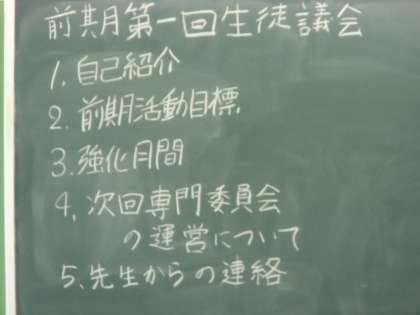 前期月第一回生徒議会
1. 自己紹介
2. 前期活動目標.
3. 強化月間
4. 次回専門委員会
の運営について
5. 先生からの連絡